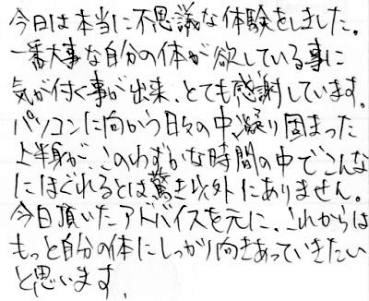 今日は本当に不思議な体験をしました。
一番大事な自分の体が欲している事に
気が付く事が出来、とても感謝しています。
パソコンに向かう日々の中、凝り固まった
上半身が、このわずかな時間の中でこんな
にほぐれるとは驚き以外にありません。
今日頂いたアドバイスを元に、これからは
もっと自分の体にしっかり向きあっていきたい
と思います。